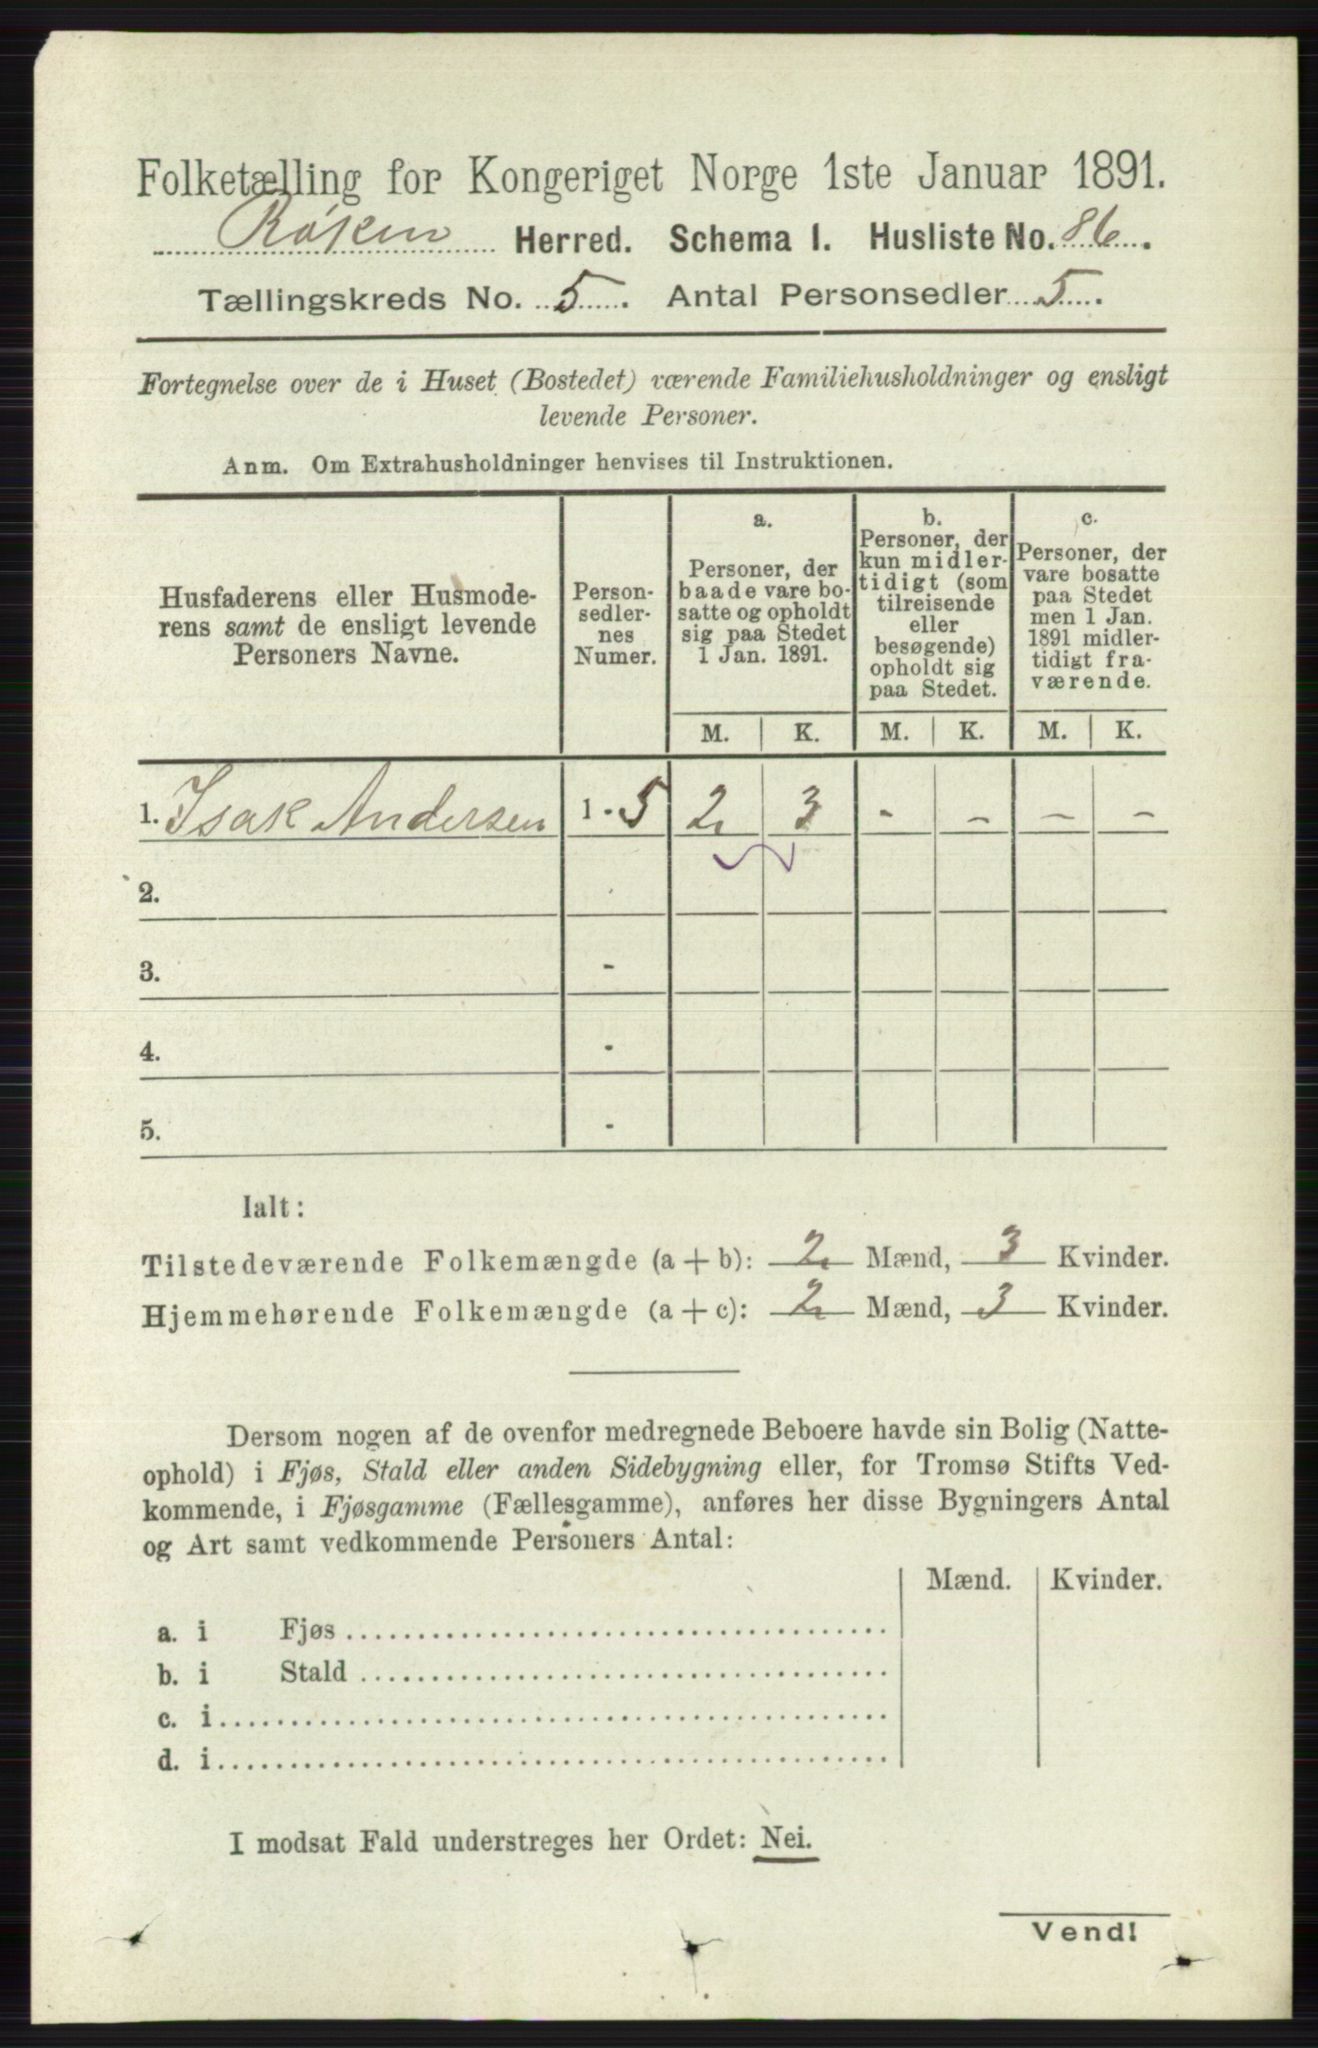 Folketælling for Kongeriget Norge 1ste Januar 1891.
Røken Herred. Schema I. Husliste No. 86.
Tællingskreds No. 5. Antal Personsedler 5.
Fortegnelse over de i Huset (Bostedet) værende Familiehusholdninger og ensligt
levende Personer.
Anm. Om Extrahusholdninger henvises til Instruktionen.
Husfaderens eller Husmode-
rens samt de ensligt levende
Personers Navne.
Person-
sedler-
nes
Numer.
a.
Personer, der
baade vare bo-
satte og opholdt
sig paa Stedet
1 Jan. 1891.
b.
Personer, der
kun midler-
tidigt (som
tilreisende
eller
besøgende)
opholdt sig
paa Stedet.
c.
Personer, der
vare bosatte
paa Stedet
men 1 Jan.
1891 midler-
tidigt fra-
værende.
M. K. M. K. M. K.
1. Isak Andersen 1 - 5 2 3 - - - -
2.
3. -
4. -
5. -
Ialt:
Tilstedeværende Folkemængde (a + b): 2 Mænd, 3 Kvinder.
Hjemmehørende Folkemængde (a + c): 2 Mænd, 3 Kvinder.
Dersom nogen af de ovenfor medregnede Beboere havde sin Bolig (Natte-
ophold) i Fjøs, Stald eller anden Sidebygning eller, for Tromsø Stifts Ved-
kommende, i Fjøsgamme (Fællesgamme), anføres her disse Bygningers Antal
og Art samt vedkommende Personers Antal:
Mænd. Kvinder.
a. i Fjøs
b. i Stald
c. i
d. i
I modsat Fald understreges her Ordet: Nei.
Vend!